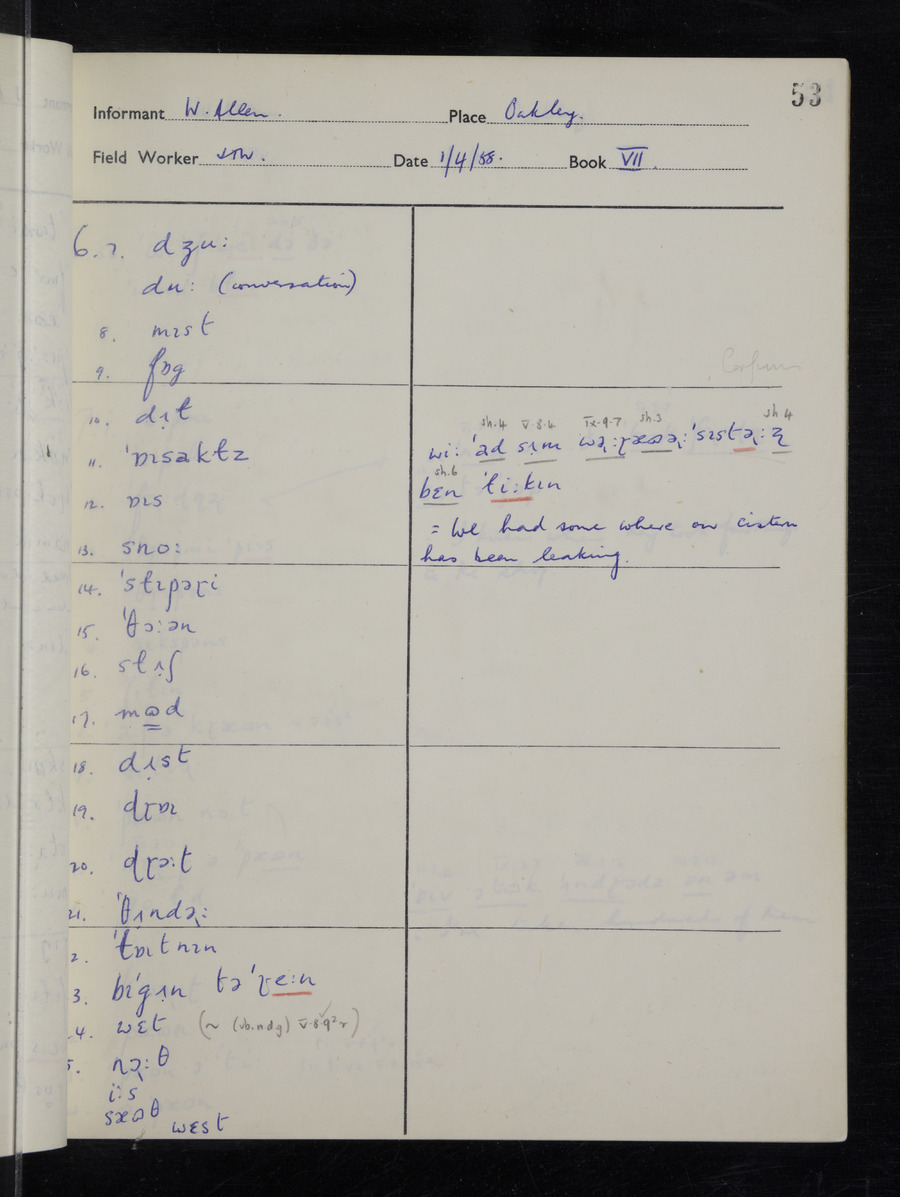 53
Informant W. Allen. Place Oakley.
Field Worker Date 1/4/58. Book VII.
6. 7. dʒu:
du: (conversation)
8. mɪst
9. fɒg
10. dɪ̣t
11. 'ɒɪsaktz
12. ɒɪs
13. snɔ:
14. 'slɪpəɽi
15. 'θɔ:ən
16.
17. mɷd
18. dʌ̣st
19. dɽɒɪ
20. dɽə:t
21. 'θʌ̣ndə˞:
2. 'lɒɪtnɪn
3. bɪ'gʌn tə 'ɽe:n
4. wɛt (~ (vb.ndg) V·8·9² r)
5. nɔ˞:θ
i:s
sæɷθ
wɛst
sh.4 V.8.4 IX.9.7 sh.3 sh.4
wi: 'ad sʌ̣m wə˞:ɽæɷə˞:'sɪstə˞:ɳ
sh.6
bɛn 'li:kɪn
= We had some where our cistern
has been leaking.